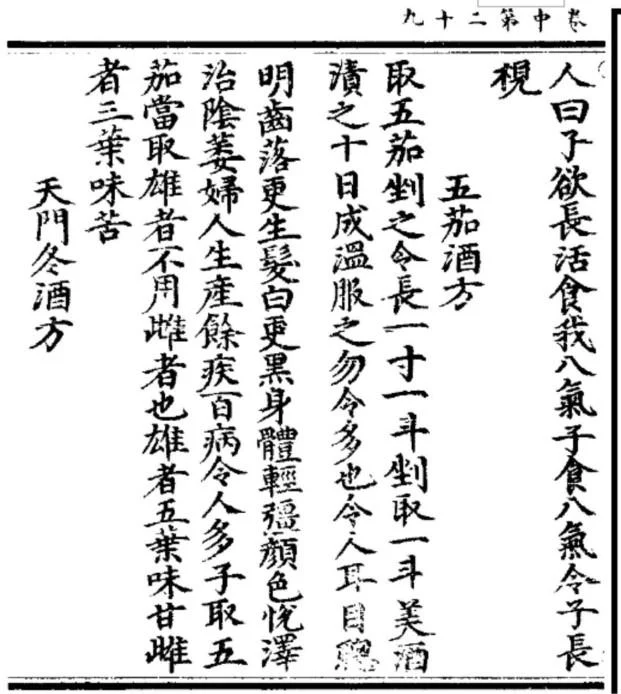 卷中第二十九
人曰子欲長活食我八氣子食八氣令子長
視
五茄酒方
取五茄剉之令長一寸一斗剉取一斗美酒
漬之十日成溫服之勿令多也令人耳目聰
明齒落更生髮白更黑身體輕彊顏色悅澤
治陰萎婦人生產餘疾百病令人多子取五
茄當取雄者不用雌者也雄者五葉味甘雌
者三葉味苦
天門冬酒方